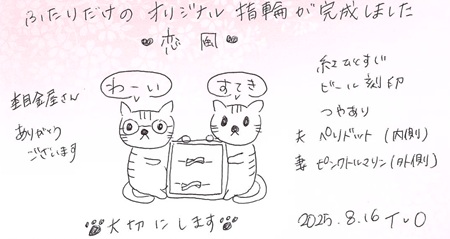 ふたりだけの オリジナル 指輪が完成しました
恋風
杢目金屋さん
ありがとう
ございます
わーい
すてき
紅ひとすじ
ビール刻印
つやあり
夫 ペリドット (内側)
妻 ピンクトルマリン (外側)
大切にします
2025.8.16